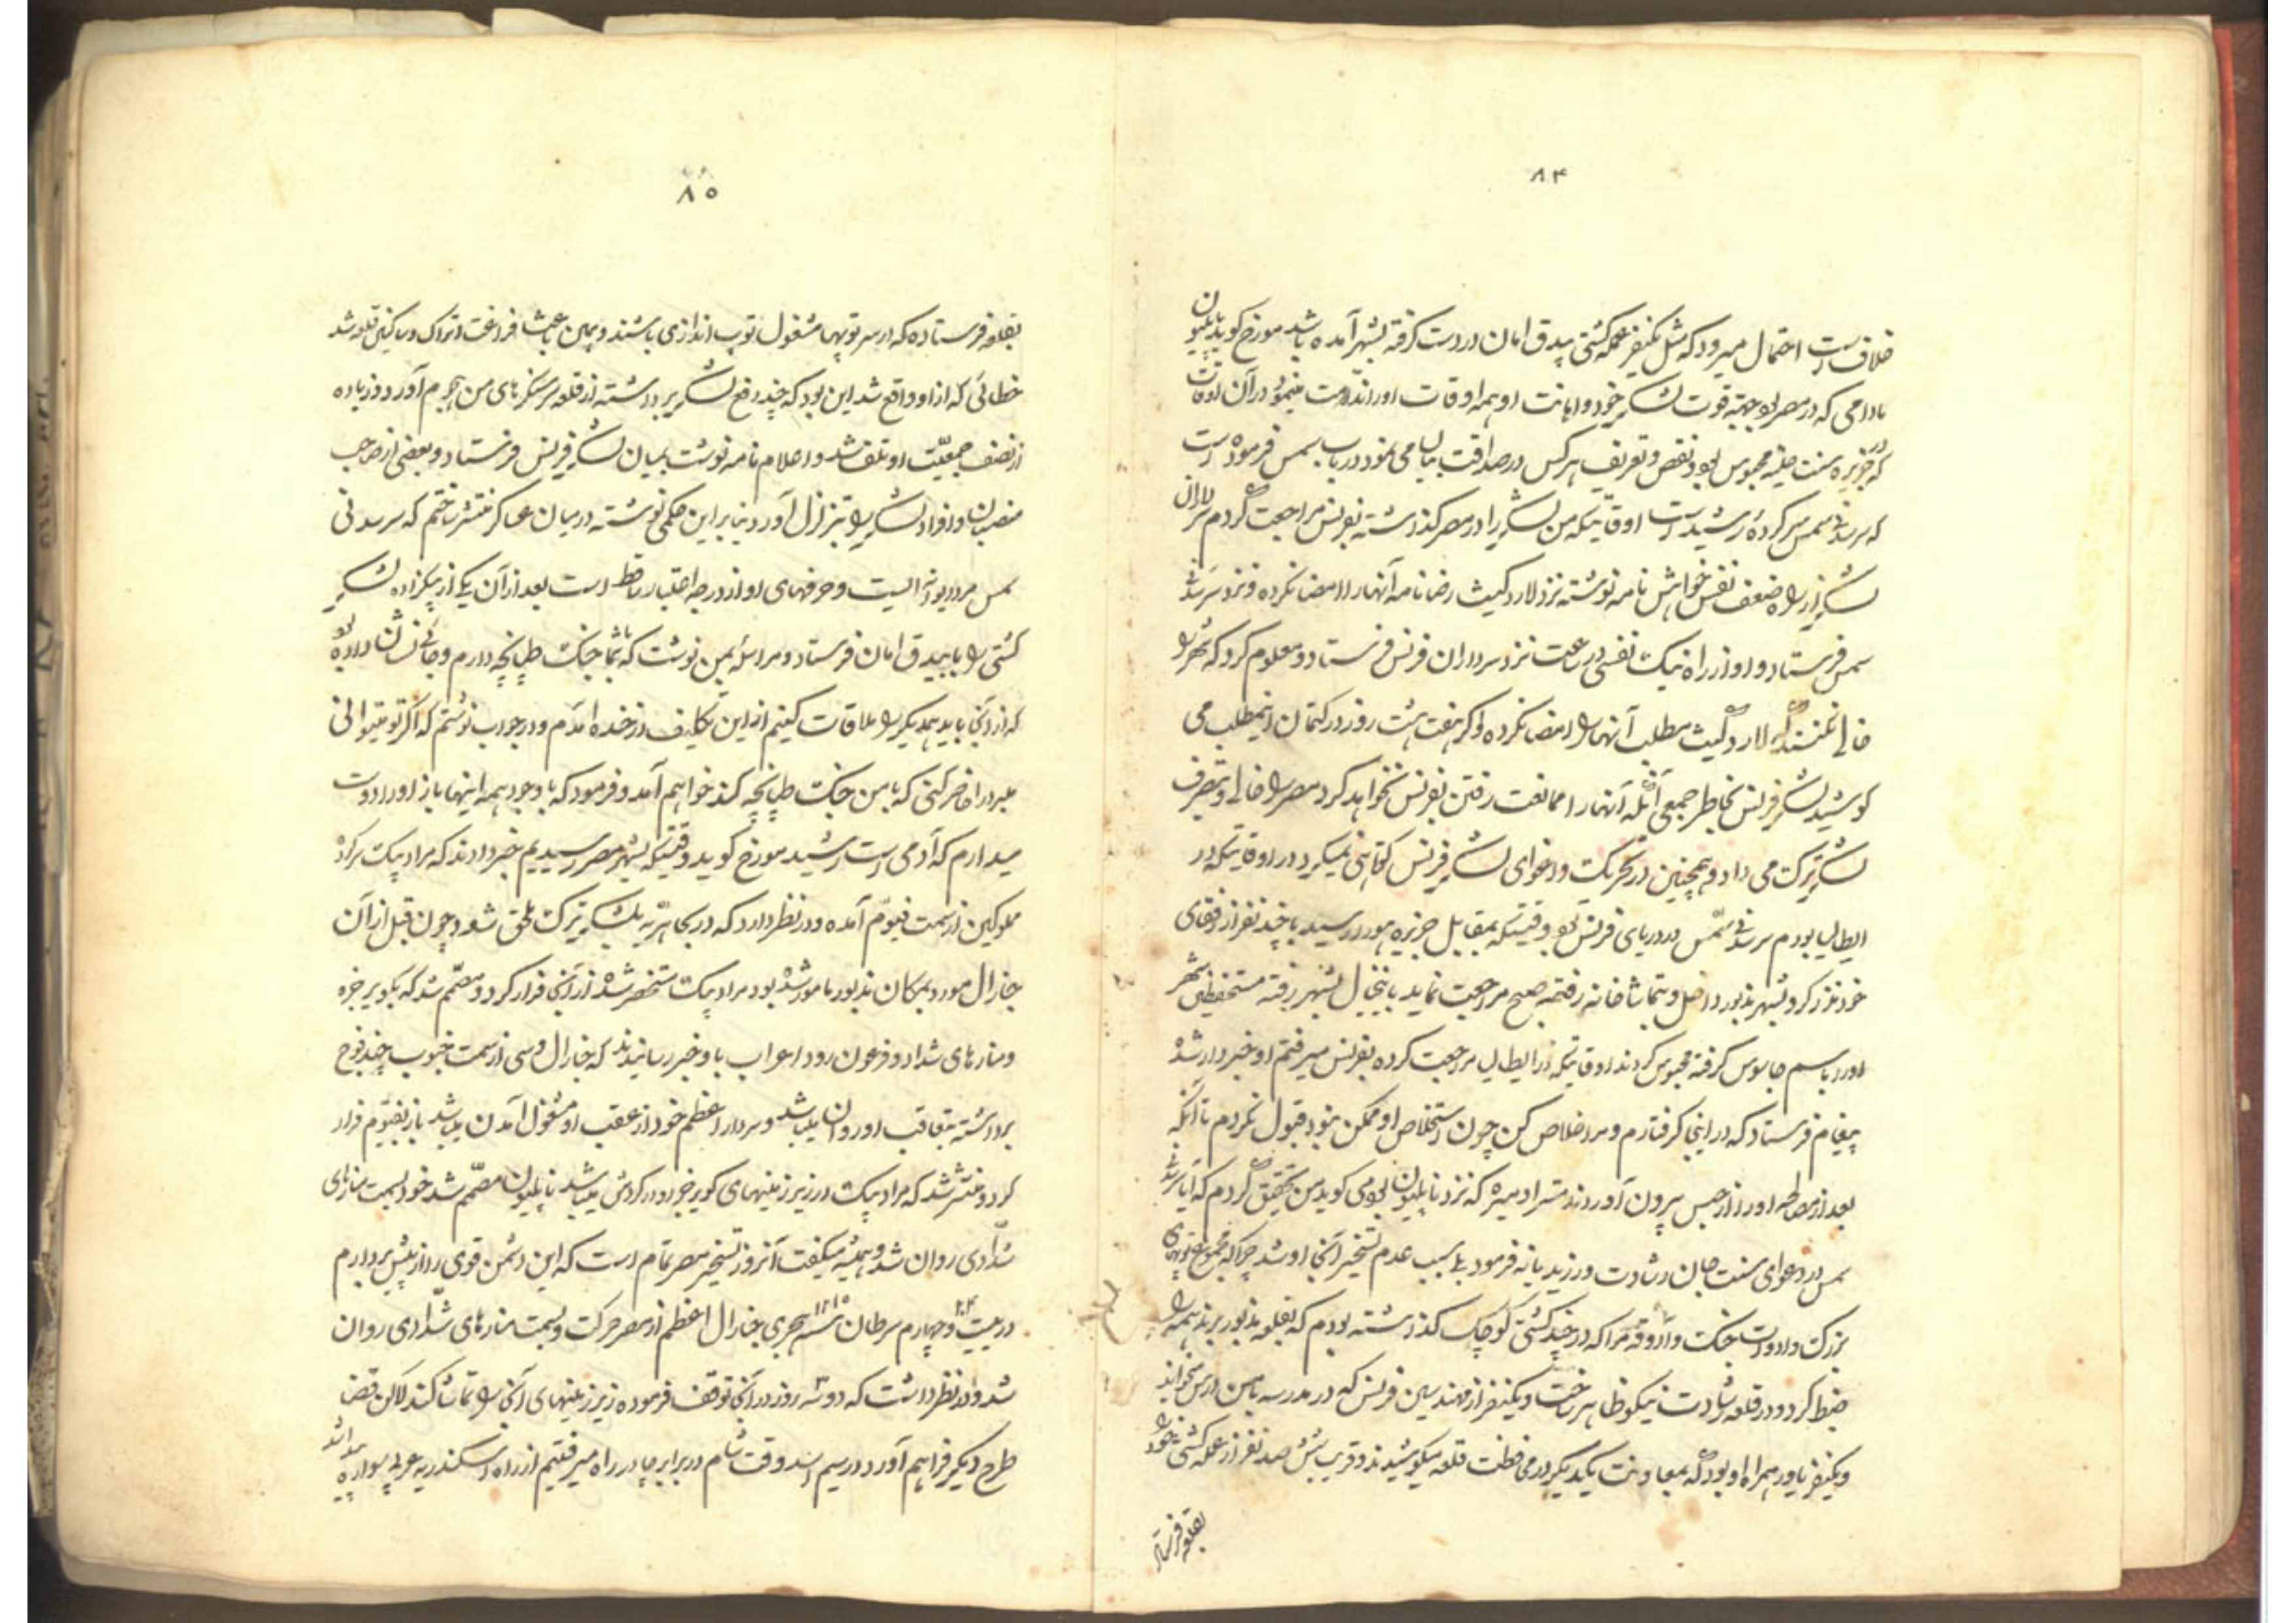 ۸۴
خلاف است احتمال میرود که مثل یکنفر عمله کشتی بیدق امان در دست گرفته بشهر آمده باشد مورخ گوید ناپلیون
مادامی که در مصر بود بجهة قوت لشکر خود و اهانت او همه اوقات او را مذمت مینمود در آن اوقات
که در جزیره سنت هلنه محبوس بود نقص و تعریف هر کس در صداقت بیان می نمود در باب سمس فرموده است
که سرسدنی سمس سرکرده رشید است اوقاتیکه من لشکر را در مصر گذاشته بفرنس مراجعت کردم سر داران
لشکر از راه ضعف نفس خواهش نامه نوشته نزد لارد کیث رضانامه آنها را امضا نکرده و نزد سرسدنی
سمس فرستاد و او از راه نیک نفسی در ساعت نزد سرداران فرنس فرستاد و معلوم کرد که شهر را
خالی نکنند که لارد کیث مطلب آنها را امضا نکرده و اگر هفت هشت روز در کتمان اینمطلب می
کوشید لشکر فرنس بخاطر جمعی آنکه آنها را ممانعت رفتن بفرنس نخواهد کرد مصر را خالی و بتصرف
لشکر ترک می داد و همچنین در تحریک و اغوای لشکر فرنس کوتاهی نمیکرد در اوقاتیکه در
ایطالیا بودم سرسدنی سمس در دریای فرنس بود وقتیکه بمقابل جزیره هور رسید با چند نفر از رفقای
خود نذر کرد بشهر مذبور داخل و بتماشاخانه رفته صبح مراجعت نماید باینخیال بشهر رفته مستحفظین شهر
او را باسم جاسوس گرفته محبوس کردند اوقاتیکه از ایطالیا مراجعت کرده بفرنس میرفتم او خبردار شده
پیغام فرستاد که در اینجا گرفتارم و مرا خلاص کن چون استخلاص او ممکن نبود قبول نکردم تا آنکه
بعد از مصالحه او را از حبس بیرون آوردند مستر اومیره که نزد ناپلیون بود می گوید من تحقیق کردم که آیا سرسدنی
سمس در دعوای سنت جان رشادت ورزید یا نه فرمود بلی سبب عدم تسخیر آنجا او شد چرا که مجموع توپهای
بزرگ و ادوات جنگ و آزوقه مرا که در چند کشتی کوچک گذاشته بودم که بقلعه مذبور برند همه را
ضبط کرد و در قلعه رشادت نیکو ظاهر ساخت و یکنفر از مهندسین فرنس که در مدرسه با من درس میخواند
و یکنفر یاور همراه او بود که بمعاونت یکدیگر در محافظت قلعه میکوشیدند و قریب شش صد نفر از عمله کشتی خود را
بقلعه فرستاده
۸۵
بقلعه فرستاده که در سر توپها مشغول توپ اندازی باشند و همین باعث فراغت اتراک و ساکنین قلعه شد
خطائی که از او واقع شد این بود که چند دفع لشکر برداشته از قلعه بر سنگرهای من هجوم آورد و زیاده
از نصف جمعیّت او تلف شد و اعلام نامه نوشت بمیان لشکر فرنس فرستاد و بعضی از صاحب
منصبان و افراد لشکر را بتزلزل آورد بنابراین حکمی نوشته در میان عساکر منتشر ساختم که سرسدنی
سمس مرد دیوانه ایست و حرفهای او از درجه اعتبار ساقط است بعد از آن یکی از بیکزاده لشکر
کشتی را با بیدق امان فرستاد و مراسله بمن نوشت که با شما جنگ طپانچه دارم و جائی نشان داده بود
که از آنجا باید یکدیگر را ملاقات کنیم از این تکلیف در خنده آمدم و در جواب نوشتم که اگر تو میتوانی
ملبرو را حاضر کنی که با من جنگ طپانچه کند خواهم آمد و فرمود که با وجود همه اینها باز او را دوست
میدارم که آدمی است رشید مورخ گوید وقتیکه بشهر مصر رسیدیم خبر دادند که مراد بیک سرکرده
مملوکین از سمت فیوم آمده و در نظر دارد که در بحاریه بلشکر ترک ملحق شود چون قبل از آن
جنرال مورد بمکان مذبور مامور شده بود مراد بیک مستحضر شده از آنجا فرار کرد و مصمّم شد که بکویر جزه
و منارهای شداد و فرعون رود اعراب باو خبر رسانیدند که جنرال دسی از سمت جنوب چند فوج
برداشته بتعاقب او روان میباشد و سردار اعظم خود از عقب او مشغول آمدن میباشد باز بفیوم فرار
کرد و منتشر شد که مراد بیک در زیر زمینهای کویر جزه در گردش میباشد ناپلیون مصمّم شد خود بسمت منارهای
شدّادی روان شد و همیشه میگفت آنروز تسخیر مصر تمام است که این دشمن قوی را از پیش بردارم
در بیست ۲۴ و چهارم سرطان سنه ۱۲۱۵ هجری جنرال اعظم از مصر حرکت و بسمت منارهای شدّادی روان
شد و در نظر داشت که دو سه روز در آنجا توقف فرموده زیر زمینهای آنجا را تماشا کند لاکن قضا
طرح دیگر فراهم آورد در رسیم وقت شام در برابر چادر راه میرفتیم از راه اسکندریه عربی سواره پیدا شد